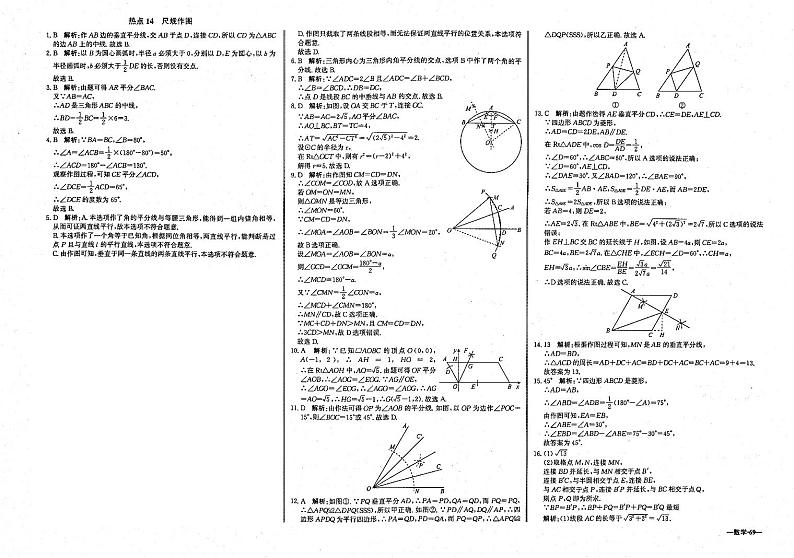 热点 14　尺规作图
1. B　解析:作 AB 边的垂直平分线,交 AB 于点 D,连接 CD,所以 CD 为△ABC
的边 AB 上的中线. 故选 B.
2. B　解析:以 B 为圆心画弧时,半径 a 必须大于 0,分别以 D,E 为圆心,以 b 为
半径画弧时,b 必须大于 1/2 DE 的长,否则没有交点.
故选 B.
3. B　解析:由题可得 AR 平分∠BAC.
又∵AB=AC,
∴AD 是三角形 ABC 的中线,
∴BD=1/2 BC=1/2×6=3.
故选 B.
4. B　解析:∵BA=BC,∠B=80°,
∴∠A=∠ACB=1/2×(180°−80°)=50°,
∴∠ACD=180°−∠ACB=130°.
观察作图过程,可知 CE 平分∠ACD,
∴∠DCE=1/2∠ACD=65°,
∴∠DCE 的度数为 65°.
故选 B.
5. D　解析:A. 本选项作了角的平分线与等腰三角形,能得到一组内错角相等,
从而可证两直线平行,故本选项不符合题意.
B. 本选项作了一个角等于已知角,根据同位角相等,两直线平行,能判断是过
点 P 且与直线 l 的平行直线,本选项不符合题意.
C. 由作图可知,垂直于同一条直线的两条直线平行,本选项不符合题意.
D. 作图只截取了两条线段相等,而无法保证两直线平行的位置关系,本选项符
合题意.
故选 D.
6. B　解析:三角形内心为三角形内角平分线的交点,选项 B 中作了两个角的平
分线. 故选 B.
7. B　解析:∵∠ADC=2∠B 且∠ADC=∠B+∠BCD,
∴∠B=∠BCD,∴DB=DC,
∴点 D 是线段 BC 的中垂线与 AB 的交点. 故选 B.
8. D　解析:如图,设 OA 交 BC 于 T,连接 OC.
∵AB=AC=2√5,AO 平分∠BAC,
∴AO⊥BC,BT=TC=4,
∴AT=√(AC²−CT²)=√((2√5)²−4²)=2.
设⊙O 的半径为 r.
在 Rt△OCT 中,则有 r²=(r−2)²+4²,
解得 r=5. 故选 D.
9. D　解析:由作图知 CM=CD=DN,
∴∠COM=∠COD,故 A 选项正确.
若 OM=ON=MN,
则△OMN 是等边三角形,
∴∠MON=60°.
∵CM=CD=DN,
∴∠MOA=∠AOB=∠BON=1/3∠MON=20°.
故 B 选项正确.
设∠MOA=∠AOB=∠BON=α,
则∠OCD=∠OCM=(180°−α)/2,
∴∠MCD=180°−α.
又∵∠CMN=1/2∠CON=α,
∴∠MCD+∠CMN=180°,
∴MN∥CD,故 C 选项正确.
∵MC+CD+DN>MN,且 CM=CD=DN,
∴3CD>MN,故 D 选项错误.
故选 D.
10. A　解析:∵已知▱AOBC 的顶点 O(0,0),
A(−1, 2), ∴ AH = 1, HO = 2,
∴在 Rt△AOH 中,AO=√5. 由题可得 OF 平分
∠AOB,∴∠AOG=∠EOG. ∵AG∥OE,
∴∠AGO=∠EOG,∴∠AGO=∠AOG,∴AG
=AO=√5,∴HG=√5−1,∴G(√5−1,2). 故选 A.
11. D　解析:由作法可得 OP 为∠AOB 的平分线. 如图,以 OP 为边作∠POC=
15°,则∠BOC=15°或 45°. 故选 D.
12. A　解析:如图①. ∵PQ 垂直平分 AD,∴PA=PD,QA=QD,而 PQ=PQ,
∴△APQ≌△DPQ(SSS),所以甲正确. 如图②. ∵PD∥AQ,DQ∥AP,∴四
边形 APDQ 为平行四边形,∴PA=DQ,PD=QA,而 PQ=QP,∴△APQ≌
△DQP(SSS),所以乙正确. 故选 A.
①　②
13. C　解析:由题作法得 AE 垂直平分 CD,∴CE=DE,AE⊥CD.
∵四边形 ABCD 为菱形,
∴AD=CD=2DE,AB∥DE.
在 Rt△ADE 中,cos D=DE/AD=1/2,
∴∠D=60°,∴∠ABC=60°. 所以 A 选项的说法正确;
∵∠D=60°,AE⊥CD,
∴∠DAE=30°. 又∠BAD=120°,∴∠BAE=90°.
∴S△ABE=1/2 AB·AE,S△ADE=1/2 DE·AE,而 AB=2DE,
∴S△ABE=2S△ADE,所以 B 选项的说法正确;
若 AB=4,则 DE=2,
∴AE=2√3. 在 Rt△ABE 中,BE=√(4²+(2√3)²)=2√7,所以 C 选项的说法
错误;
作 EH⊥BC 交 BC 的延长线于 H,如图,设 AB=4a,则 CE=2a,
BC=4a,BE=2√7a. 在△CHE 中,∠ECH=∠D=60°,∴CH=a,
EH=√3a,∴sin∠CBE=EH/BE=√3a/2√7a=√21/14,
∴D 选项的说法正确. 故选 C.
14. 13　解析:根据作图过程可知,MN 是 AB 的垂直平分线,
∴AD=BD,
∴△ACD 的周长=AD+DC+AC=BD+DC+AC=BC+AC=9+4=13.
故答案为 13.
15. 45°　解析:∵四边形 ABCD 是菱形,
∴AD=AB,
∴∠ABD=∠ADB=1/2(180°−∠A)=75°,
由作图可知,EA=EB,
∴∠ABE=∠A=30°,
∴∠EBD=∠ABD−∠ABE=75°−30°=45°.
故答案为 45°.
16. (1)√13
(2)取格点 M,N,连接 MN,
连接 BD 并延长,与 MN 相交于点 B′,
连接 B′C,与半圆相交于点 E,连接 BE,
与 AC 相交于点 P,连接 B′P 并延长,与 BC 相交于点 Q,
则点 P,Q 即为所求.
∵BP=B′P,∴BP+PQ=B′P+PQ=B′Q 最短
解析:(1)线段 AC 的长等于√(3²+2²)=√13.
—数学·69—